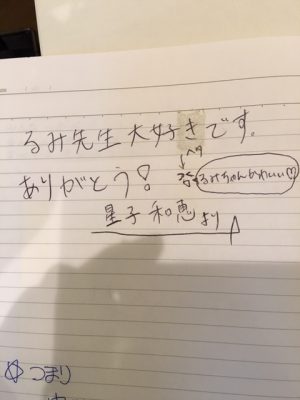 るみ先生大好きです。
ヘタ
ありがとう!
るみちゃんかわいい♡
星子和恵より
つまり